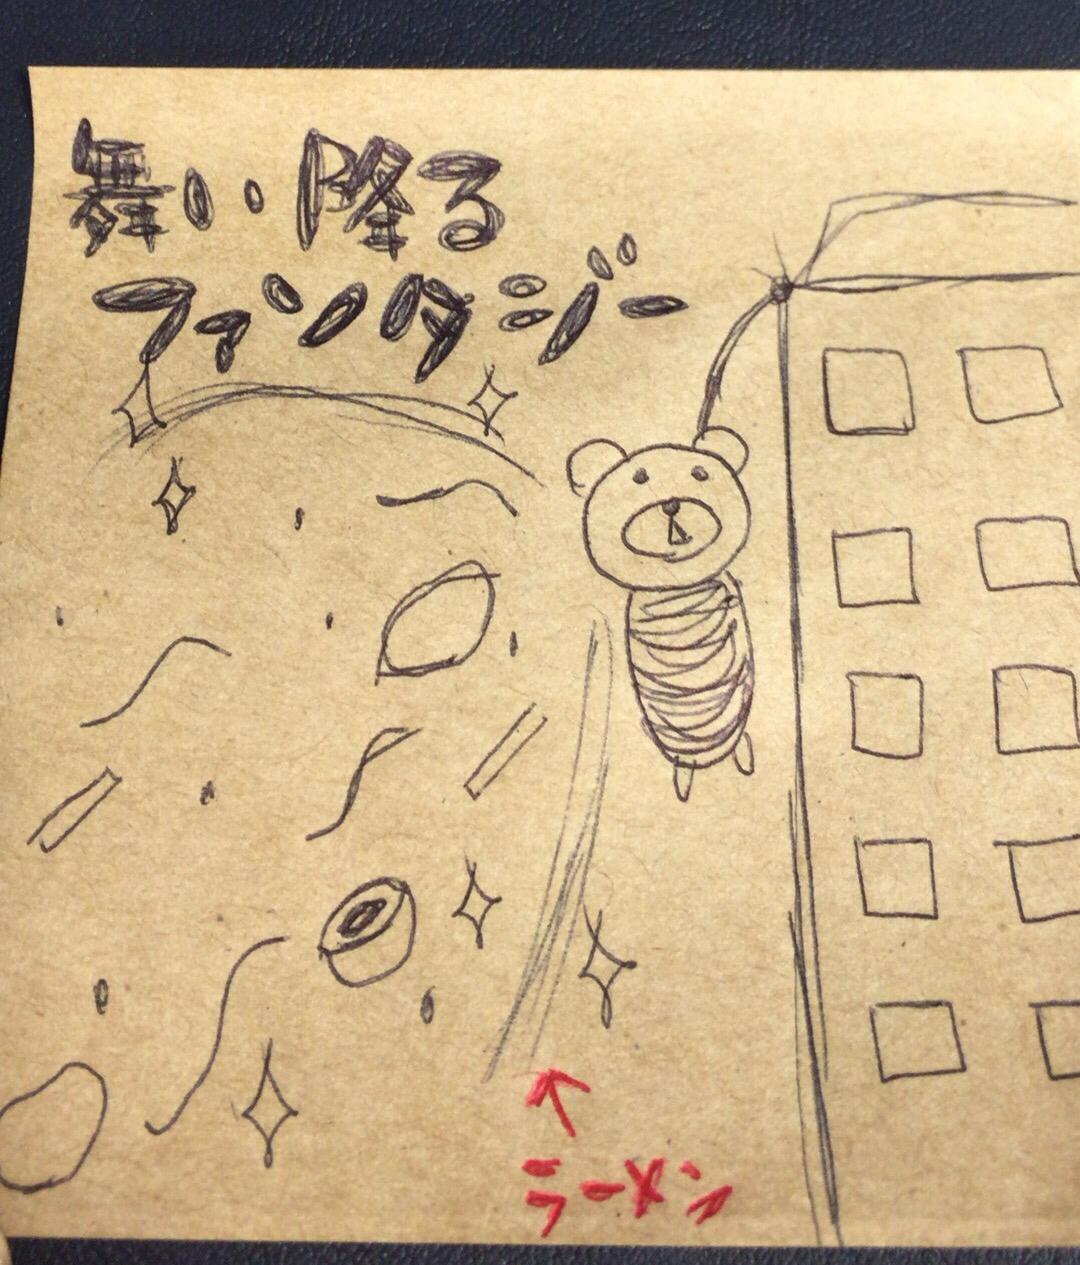 舞い降る
ファンタジー
ラーメン